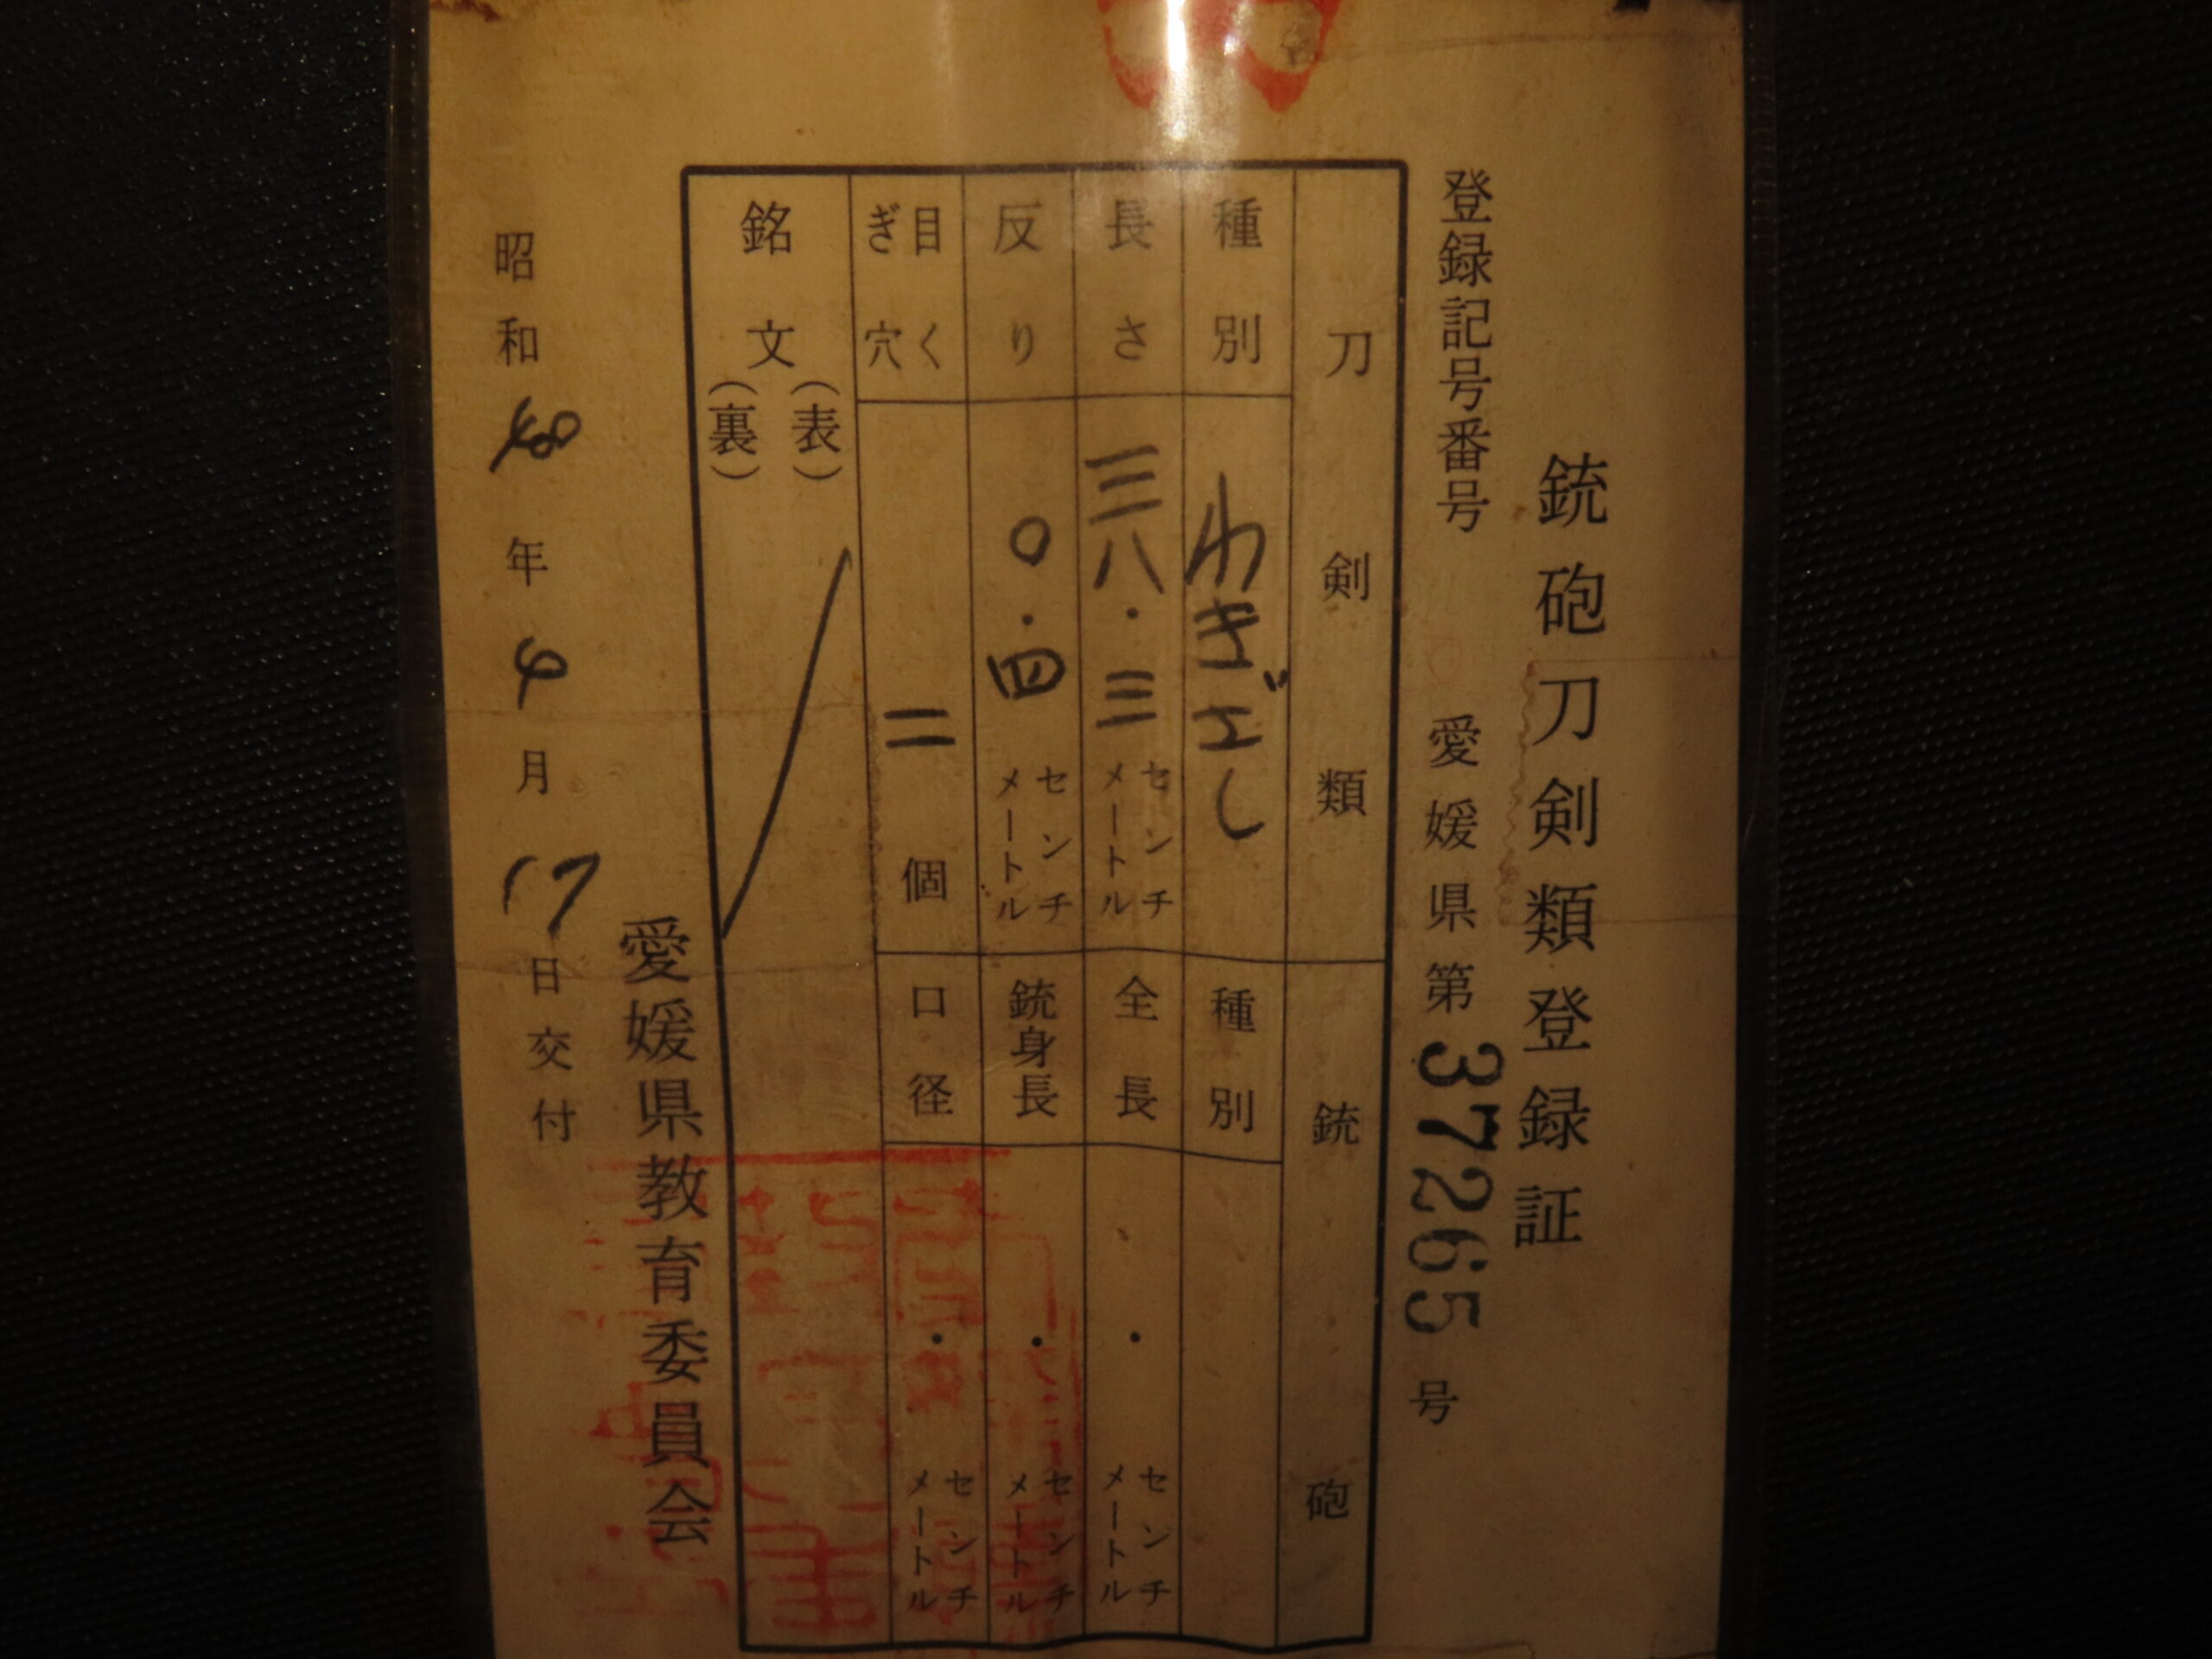 銃砲刀剣類登録証
登録記号番号 愛媛県第37265号
刀剣類
種別 わきざし
長さ 三八・三 センチメートル
反り 〇・四 センチメートル
目くぎ穴 二 個
銘文
(表)
(裏)
銃砲
種別
全長 ・ センチメートル
銃身長 ・ センチメートル
口径 ・ センチメートル
愛媛県教育委員会
昭和 年 4 月 17 日交付